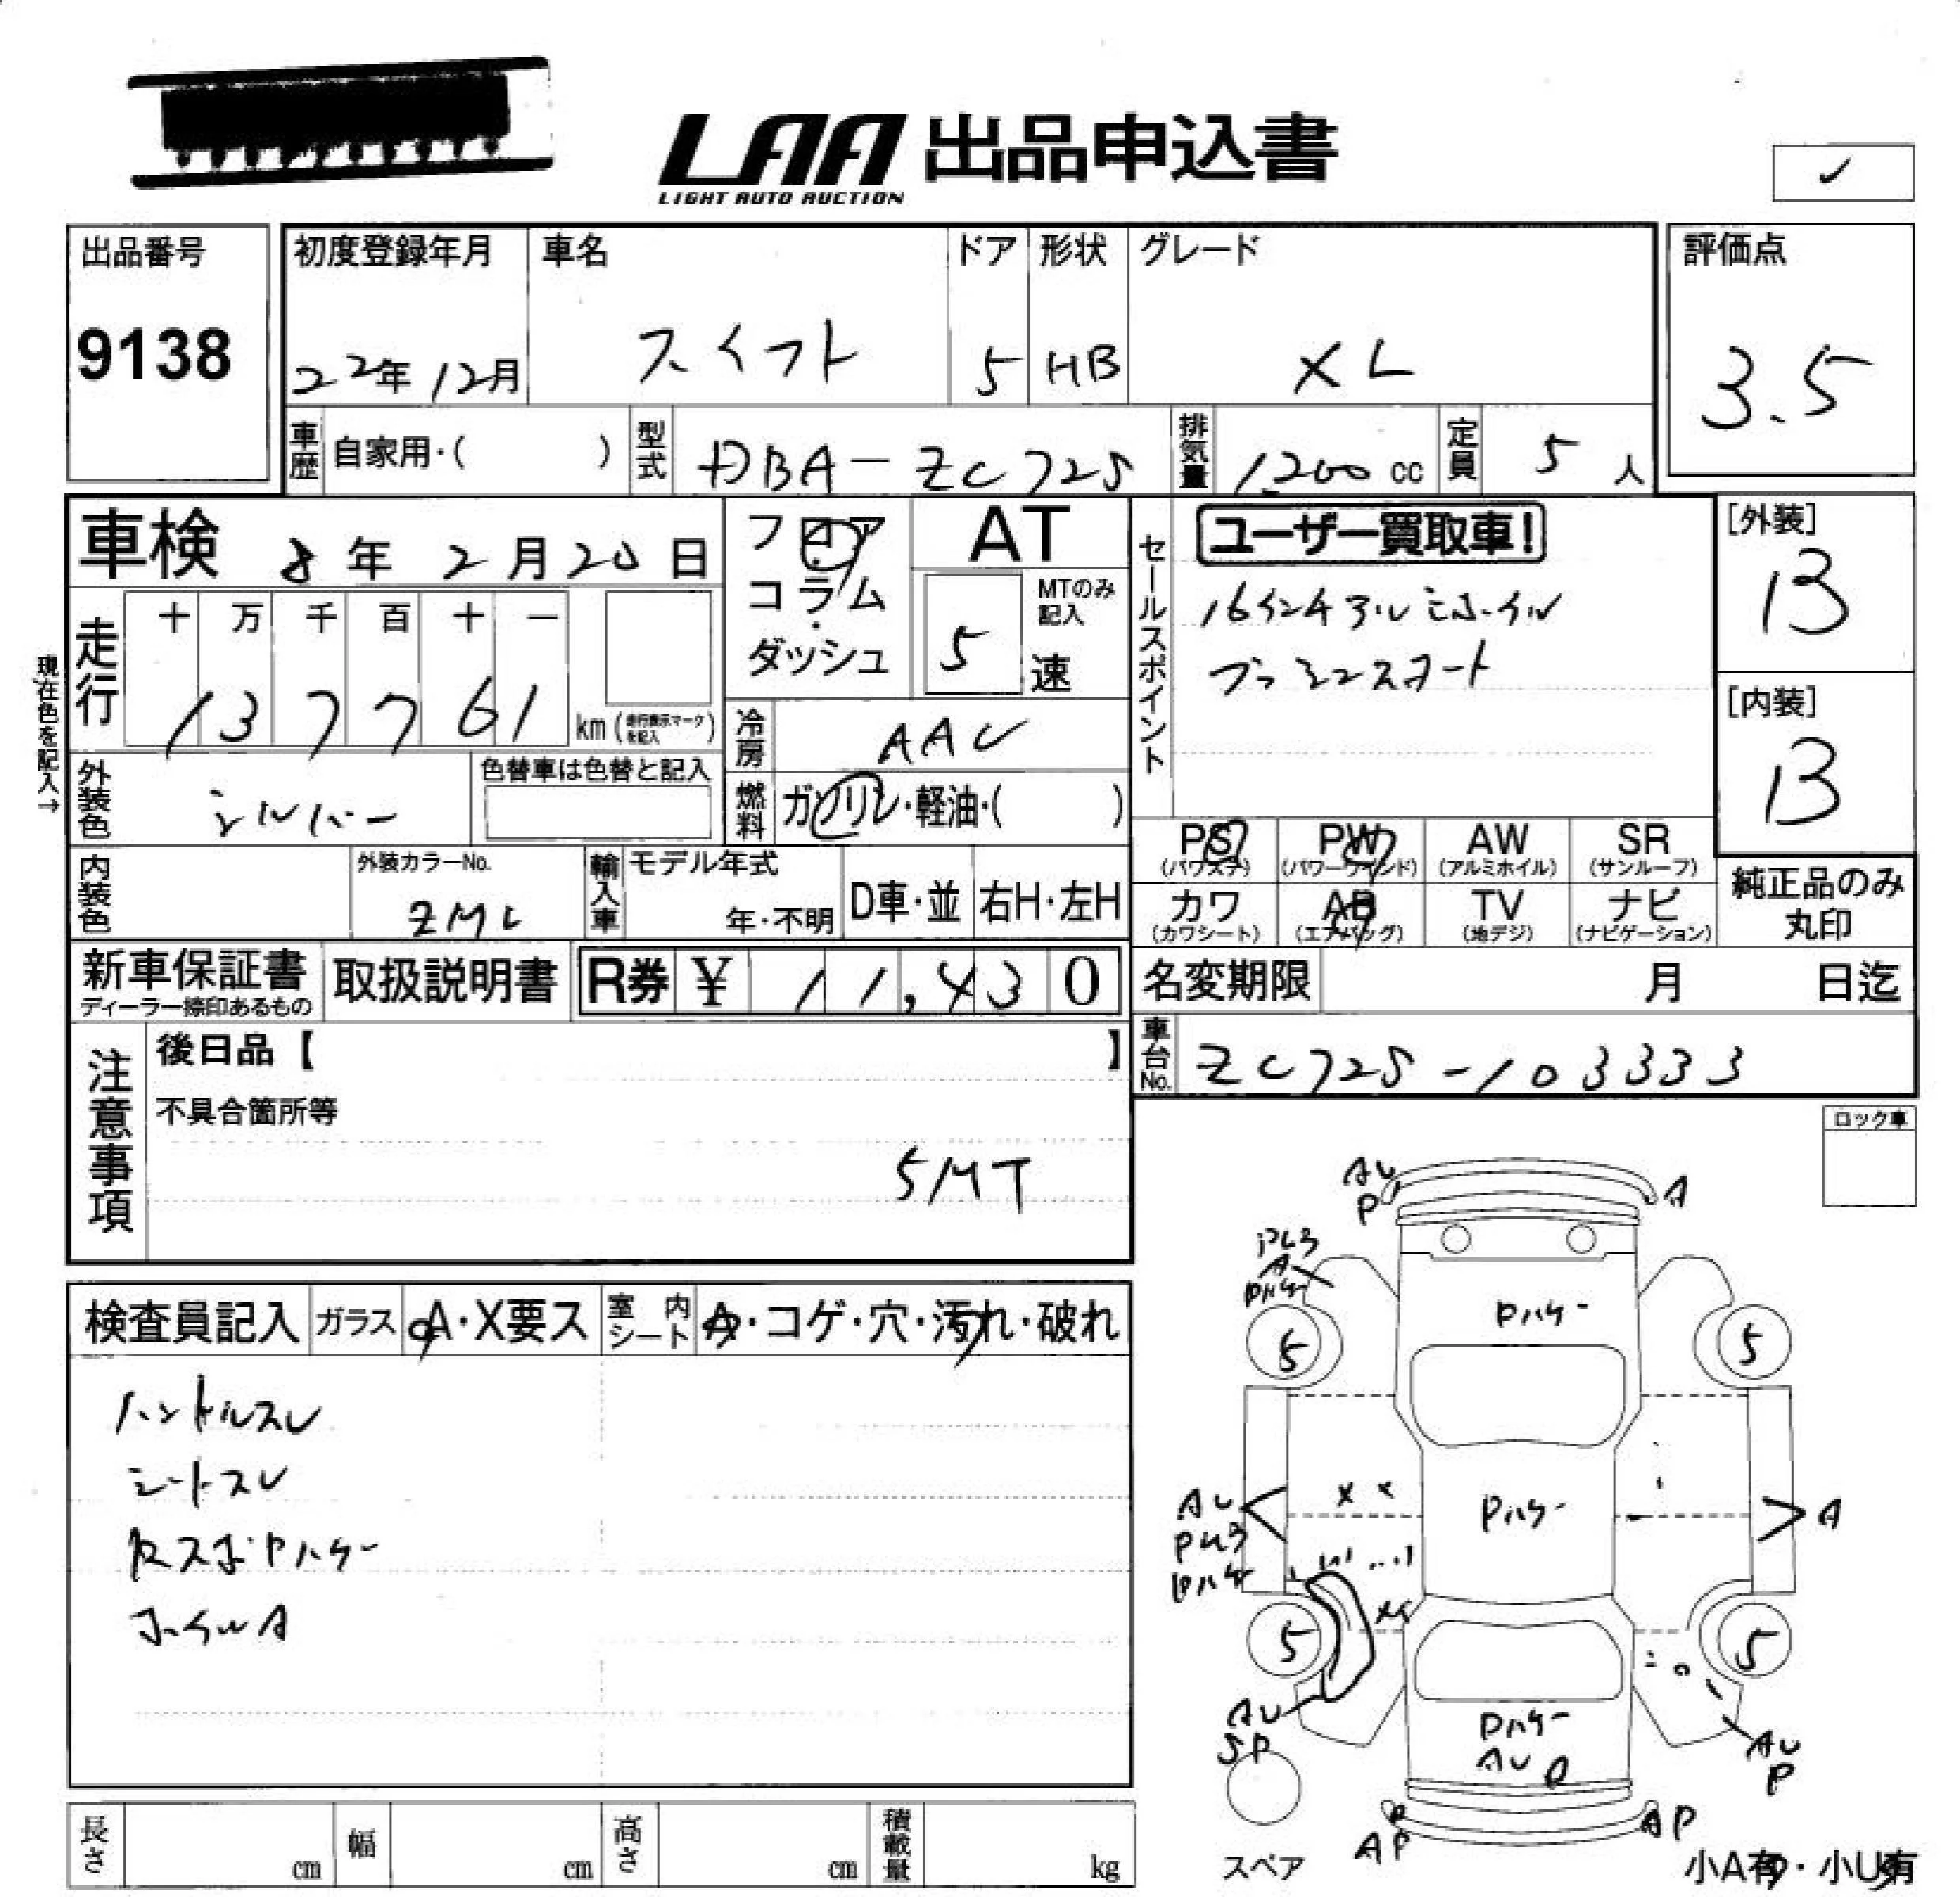 LAA 出品申込書
LIGHT AUTO AUCTION
出品番号
9138
初度登録年月
22年12月
車名
スイフト
ドア
5
形状
HB
グレード
XL
評価点
3.5
車歴
自家用・( )
型式
DBA-ZC72S
排気量
1,200 cc
定員
5 人
車検 8年2月20日
フロア・コラム・ダッシュ
AT
MTのみ記入
5 速
セールスポイント
ユーザー買取車!
16インチアルミホイール
プッシュスタート
[外装]
B
[内装]
B
現在色を記入→
走行
十 万 千 百 十 一
137761 km (走行表示マークを記入)
冷房
AAC
外装色
シルバー
色替車は色替と記入
燃料
ガソリン・軽油・( )
PS (パワステ)
PW (パワーウインド)
AW (アルミホイル)
SR (サンルーフ)
カワ (カワシート)
AB (エアバッグ)
TV (地デジ)
ナビ (ナビゲーション)
純正品のみ丸印
内装色
外装カラーNo.
ZML
輸入車
モデル年式
年・不明
D車・並
右H・左H
新車保証書
ディーラー捺印あるもの
取扱説明書
R券 ¥ 11,430
名変期限 月 日迄
車台No.
ZC72S-103333
注意事項
後日品【 】
不具合箇所等
5MT
ロック車
検査員記入
ガラス
A・X要ス
室内シート
A・コゲ・穴・汚れ・破れ
ハンドルスレ
シートスレ
ホイルA
AU
P
A
A
Pハゲ
Pハゲー
5
5
AU
Pハゲ
Pハゲー
A
5
5
AU
SP
Pハゲー
AU
AU
P
AP
AP
スペア
小A有・小U有
長さ cm
幅 cm
高さ cm
積載量 kg